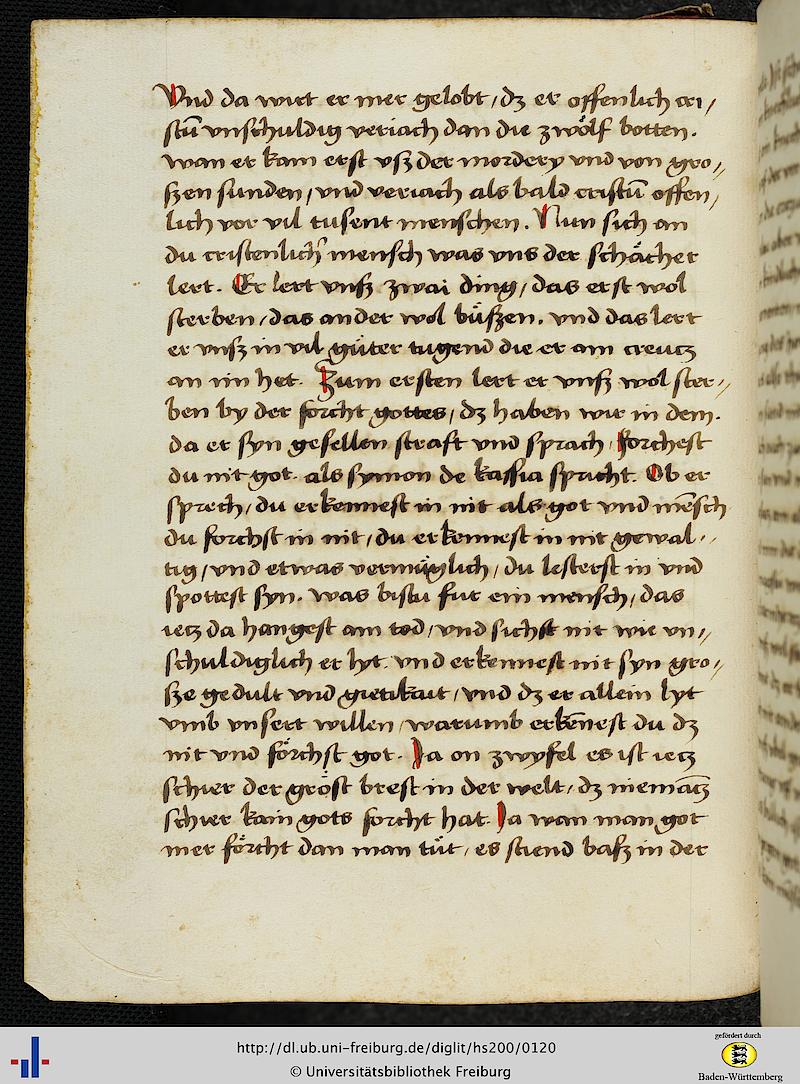 Vnd da wirt er mer gelobt / dz er offenlich cri /
stū vnschuldig veriach dan die zwölf botten .
wan er kam erst vsz der mordery vnd von gro //
szen sunden / vnd veriach als bald cristū offen /
lich vor vil tusent menschen . Nun sich an
du cristenlich' mensch was vns der schächer
lert . Er lert vnsz zwai ding / das erst wol
sterben / das ander wol büszen . vnd das lert
er vnsz in vil güter tugend die er am creucz
an im het . Zum ersten lert er vnsz wol ster //
ben by der forcht gottes / dz haben wir in dem .
da er syn gesellen straft vnd sprach / forchest
du nit got . als symon de kassia spricht . Ob er
sprech / du erkennest in nit als got vnd mēsch
du forchst in nit / du erkennest in nit gewal //
tig / vnd etwas vermüglich / du lesterst in vnd
spottest syn . was bistu fur ein mensch / das
iecz da hangest am tod / vnd sichst nit wie vn //
schuldiglich er lyt . vnd erkennest nit syn gro /
sze gedult vnd gietikait / vnd dz er allein lyt
vmb vnsert willen / warumb erkēnest du dz
nit vnd förchst got . Ja on zwyfel es ist iecz
schier der gröst brest in der welt / dz niemācz
schier kain gots forcht hat . Ja wan man got
mer förcht dan man tüt / es stiend basz in der
http://dl.ub.uni-freiburg.de/diglit/hs200/0120
© Universitätsbibliothek Freiburg
gefördert durch
Baden-Württemberg